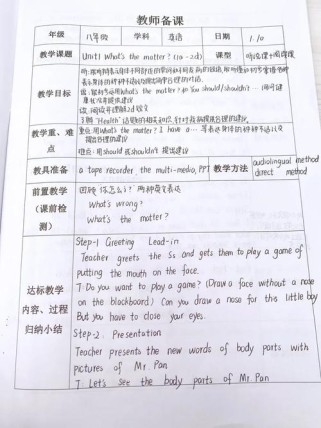 教师备课
年级 八年级 学科 英语 日期 1/10
教学课题 Unit1 What's the matter? (1a-2d) 课型 听说课+阅读课
教学目标
说: 能够运用 What's the matter? You should/shouldn't
读: 阅读并理解 2d 短文
了解 "Health" 话题的相关知识
教学重、难点
重点: 用 What's the matter? I have a...
难点: 用 should 或 shouldn't 提出建议
教具准备 a tape recorder, the multi-media, PPT 教学方法 audiolingual method
direct method
前置教学
(课前检测)
回顾 "你怎么了?" 两种英文表达
What's wrong?
What's the matter?
达标教学
内容、过程
归纳小结
Step-1 Greeting Lead-in
Teacher greets the Ss and gets them to play a game of
putting the mouth on the face.
T: Do you want to play a game? (Draw a face without a nose
on the blackboard) Can you draw a nose for this little boy
But you have to close your eyes.
Step-2. Presentation
Teacher presents the new words of body parts with
pictures of Mr. Pan
T: Let's see the body parts of Mr. Pan